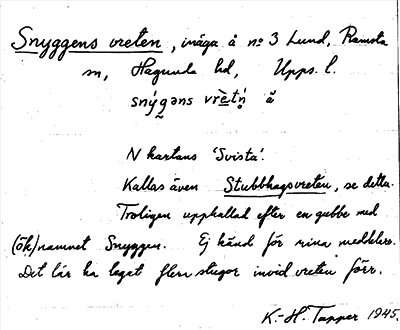 Snyggens vreten, inäga å nº 3 Lund, Ramsta
sn, Hagunda hd, Upps. l.
snýg̬əns vrè̱tń̥ ä
N kartans 'Svista'.
Kallas även Stubbhagsvreten, se detta.
Troligen uppkallad efter en gubbe med
(ök)namnet Snyggen. Ej känd för mina meddelare.
Det lär ha legat flera stugor invid vreten förr.
K.-H. Tapper 1945.